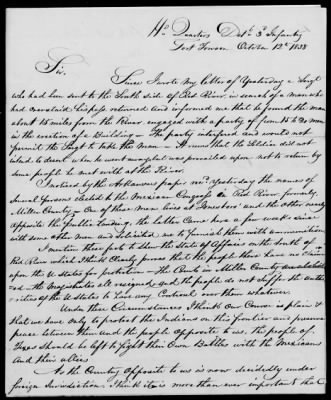 Hd. Quarters Det. 3d Infantry
Fort Towson October 12th 1838
Sir,
Since I wrote my letter of Yesterday a Sergt
who had been sent to the South side of Red River, in search of a man
who had overstaid his pass, returned and informed me that he found the man
about 15 miles from the River engaged with a party of from 15 to 20 men
in the erection of a Building — The party interfered and would not
permit the Sergt to take the man — It seems that the Soldier did not
intend to desert when he went over, but was prevailed upon not to return by
some people he met with at the River.
I noticed by the Arkansas paper recd Yesterday the names of
several persons elected to the Congress from Red River formerly
Miller County — One of these men lives at Jonesboro and the other nearly
opposite the public landing, the latter came here a few weeks since
with some other men and solicited me to furnish them with ammunition
I mention these facts to shew the State of Affairs on the South of
Red River which I think clearly proves that the people there have no claim
upon the U States for protection — The Courts in Miller County are abolish
ed — the Magistrates all resigned and the people do not suffer the author
ities of the U States to have any Control over them whatever.
Under these Circumstances I think our Course is plain &
that we have only to protect the Indians on this frontier and preserve
peace between them and the people opposite to us. The people of
Texas should be left to fight their Own Battles with the Mexicans
and their allies
As the Country Opposite to us is now decidedly under
foreign Jurisdiction, I think it is more than ever important that